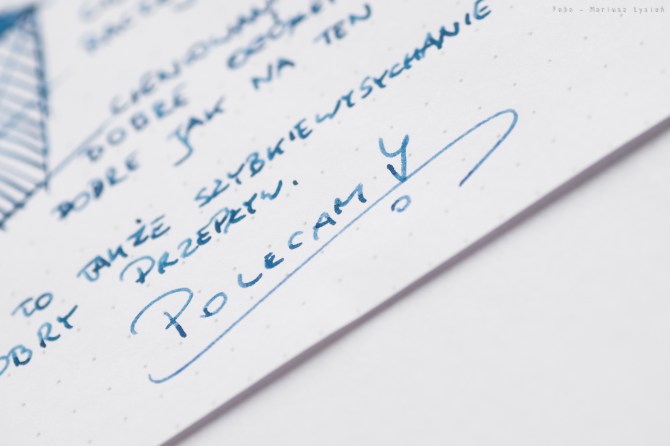 Foto - Mariusz Łysiak
CIENIOWANI
DOBRE
DOBRE JAK NA TEN
TO TAKŻE SZYBKIE WYSYCHANIE
OBRY PRZEPŁYW.
POLECAM!